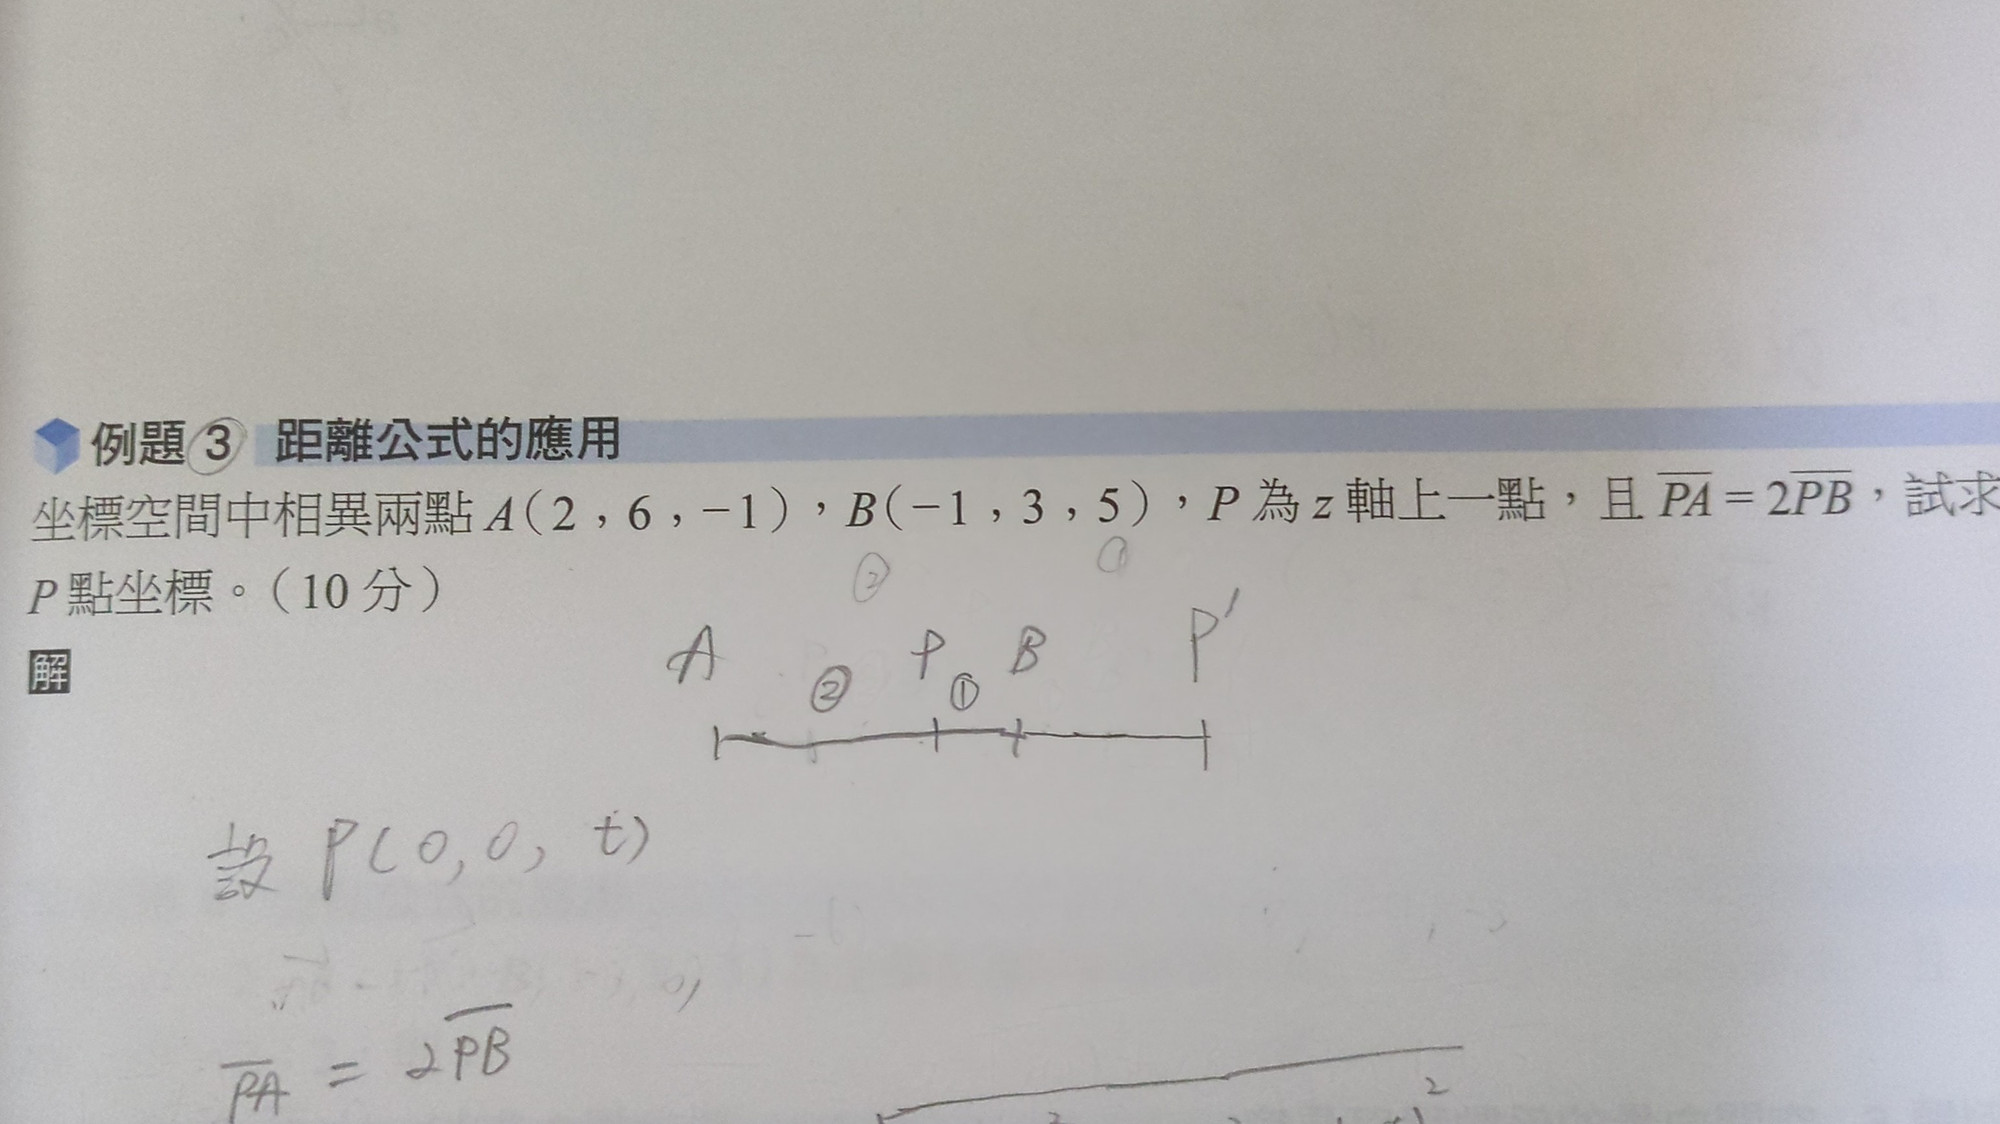 例題3 距離公式的應用
坐標空間中相異兩點 A(2,6,-1),B(-1,3,5),P 為 z 軸上一點,且 PA = 2PB,試求
P 點坐標。(10 分)
② ①
解
A ② P ① B P'
設 P(0,0,t)
PA = 2PB